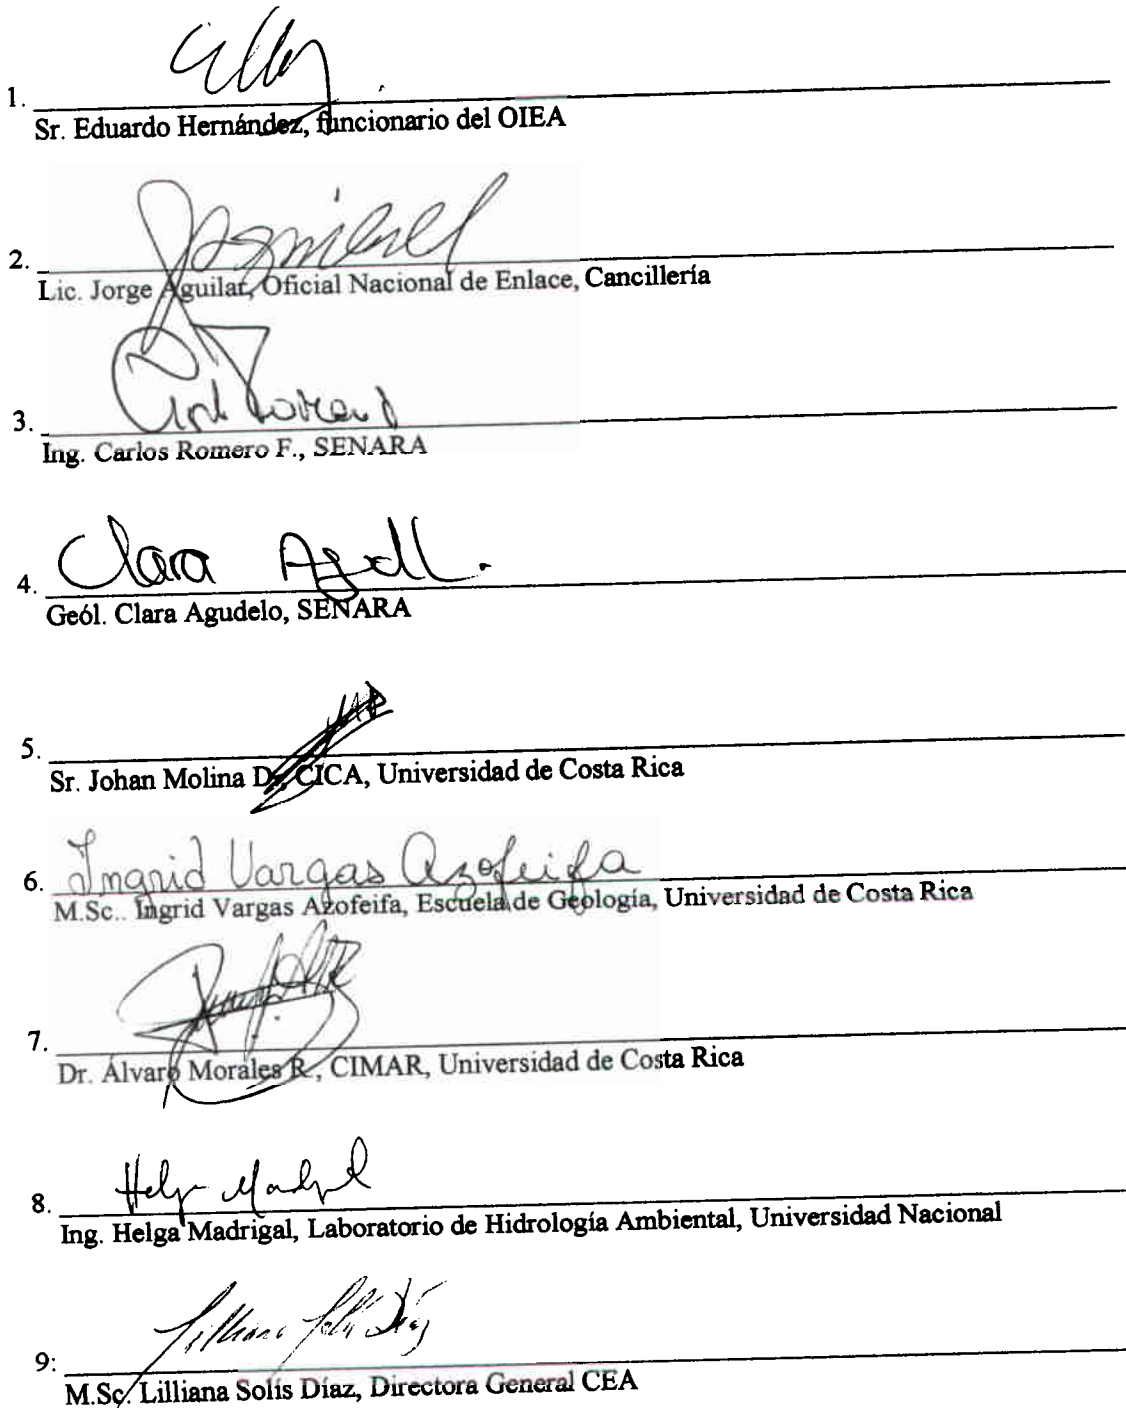 1.
Sr. Eduardo Hernández, funcionario del OIEA
2.
Lic. Jorge Aguilar, Oficial Nacional de Enlace, Cancillería
3.
Ing. Carlos Romero F., SENARA
Clara
4.
Geól. Clara Agudelo, SENARA
5.
Sr. Johan Molina D., CICA, Universidad de Costa Rica
Ingrid Vargas Azofeifa
6.
M.Sc.. Ingrid Vargas Azofeifa, Escuela de Geología, Universidad de Costa Rica
7.
Dr. Álvaro Morales R., CIMAR, Universidad de Costa Rica
Helga Madrigal
8.
Ing. Helga Madrigal, Laboratorio de Hidrología Ambiental, Universidad Nacional
Lilliana Solís Díaz
9:
M.Sc. Lilliana Solís Díaz, Directora General CEA